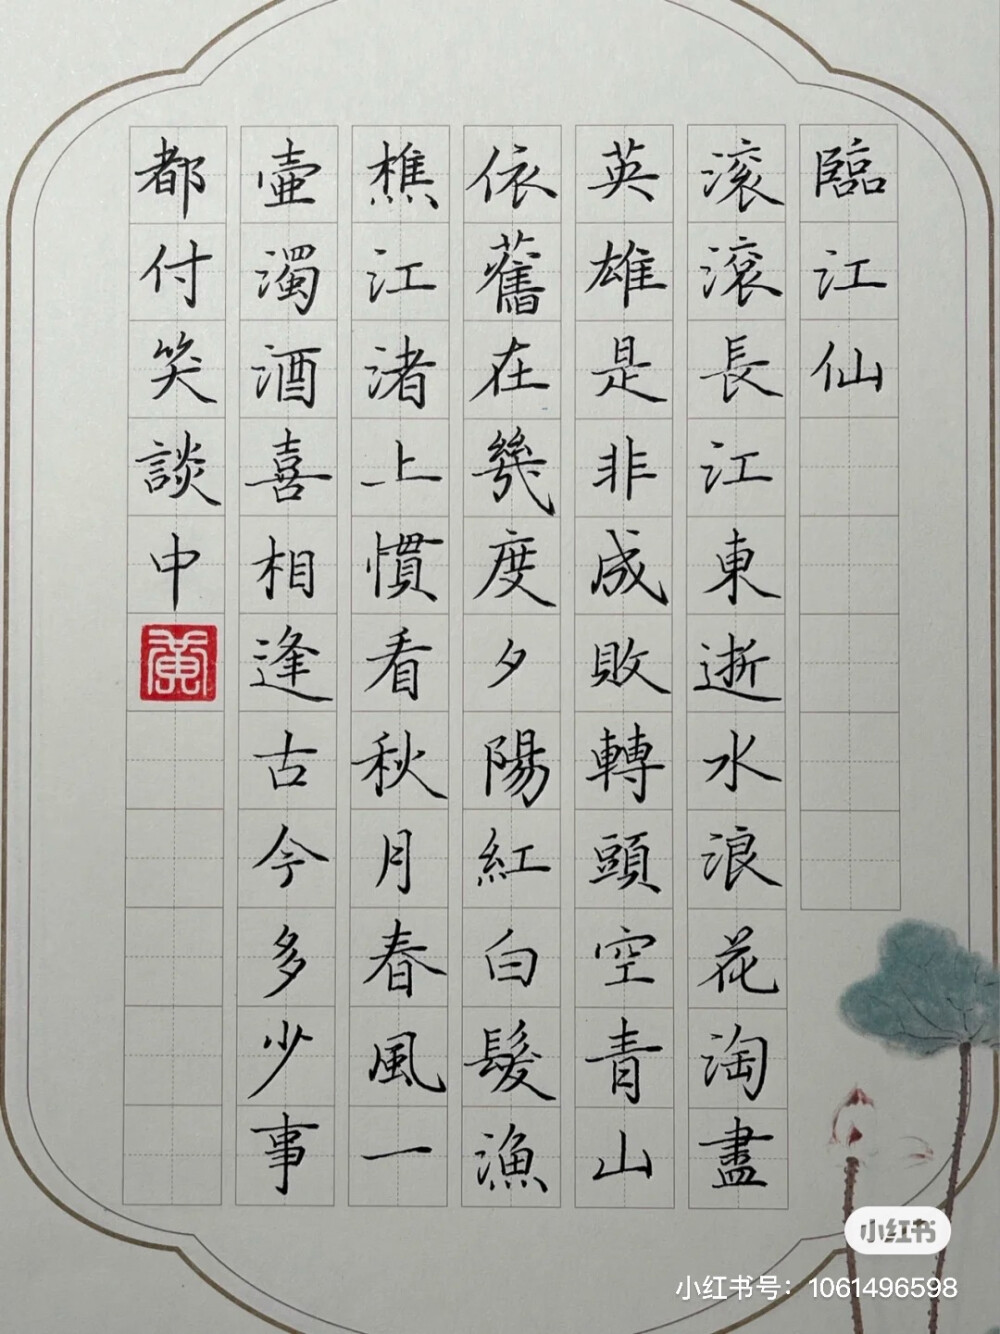 臨江仙
滾滾長江東逝水浪花淘盡
英雄是非成敗轉頭空青山
依舊在幾度夕陽紅白髮漁
樵江渚上慣看秋月春風一
壺濁酒喜相逢古今多少事
都付笑談中
小红书
小红书号：1061496598